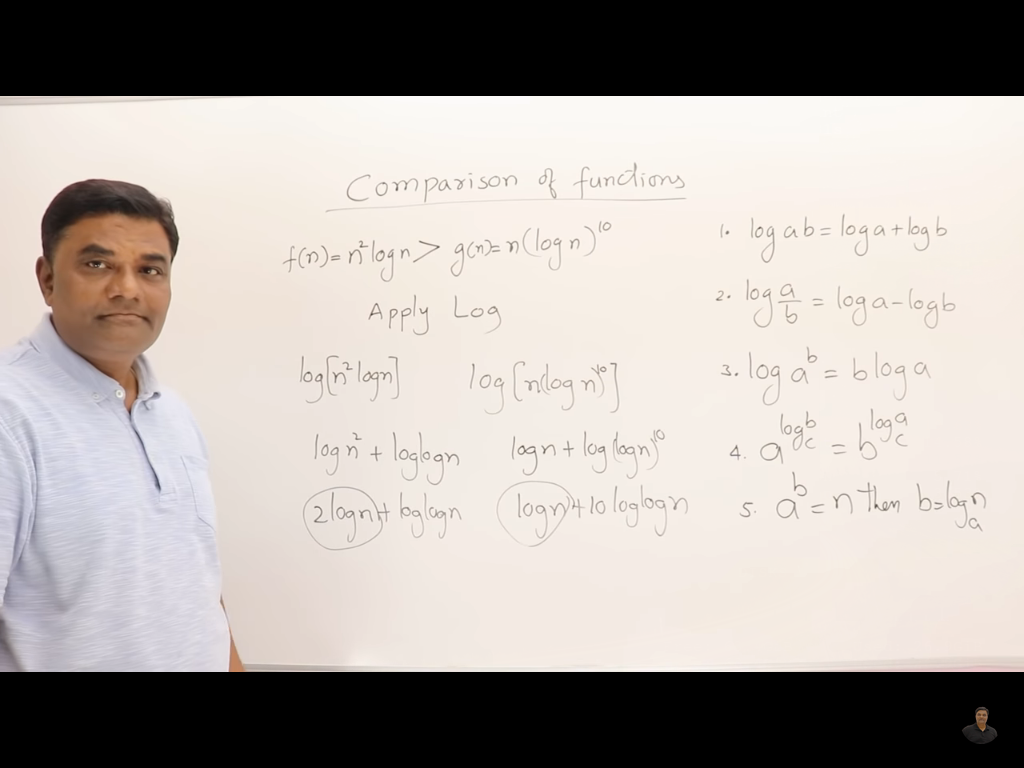 Comparison of functions
f(n)=n²logn > g(n)=n(logn)¹⁰
Apply Log
log[n²logn] log[n(logn)¹⁰]
logn² + loglogn logn + log(logn)¹⁰
2logn + loglogn logn + 10 loglogn
1. log ab = log a + log b
2. log a/b = log a - log b
3. log a^b = b log a
4. a^(log_c b) = b^(log_c a)
5. a^b = n then b = log_a n